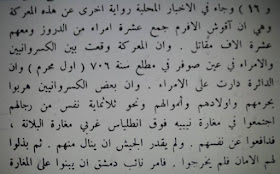 ١٦ ) وجاء في الاخبار المحلية رواية اخرى عن هذه المعركة
وهي ان آقوش الافرم جمع عشرة امراء من الدروز ومعهم
عشرة الاف مقاتل . وان المعركة وقعت بين الكسروانيين
والامراء في عين صوفر في مطلع سنة ٧٠٦ ( اول محرم ) وان
الدائرة دارت على الامراء . وان بعض الكسروانيين هربوا
بحرمهم واولادهم واموالهم ونحو ثلاثماية نفس من رجالهم
اجتمعوا في مغارة نيبيه فوق انطلياس غربي مغارة البلانة ،
فدافعوا عن نفسهم . ولم يقدر الجيش ان ينال منهم . ثم بذلوا
لهم الامان فلم يخرجوا . فامر نائب دمشق ان يبنوا على المغارة